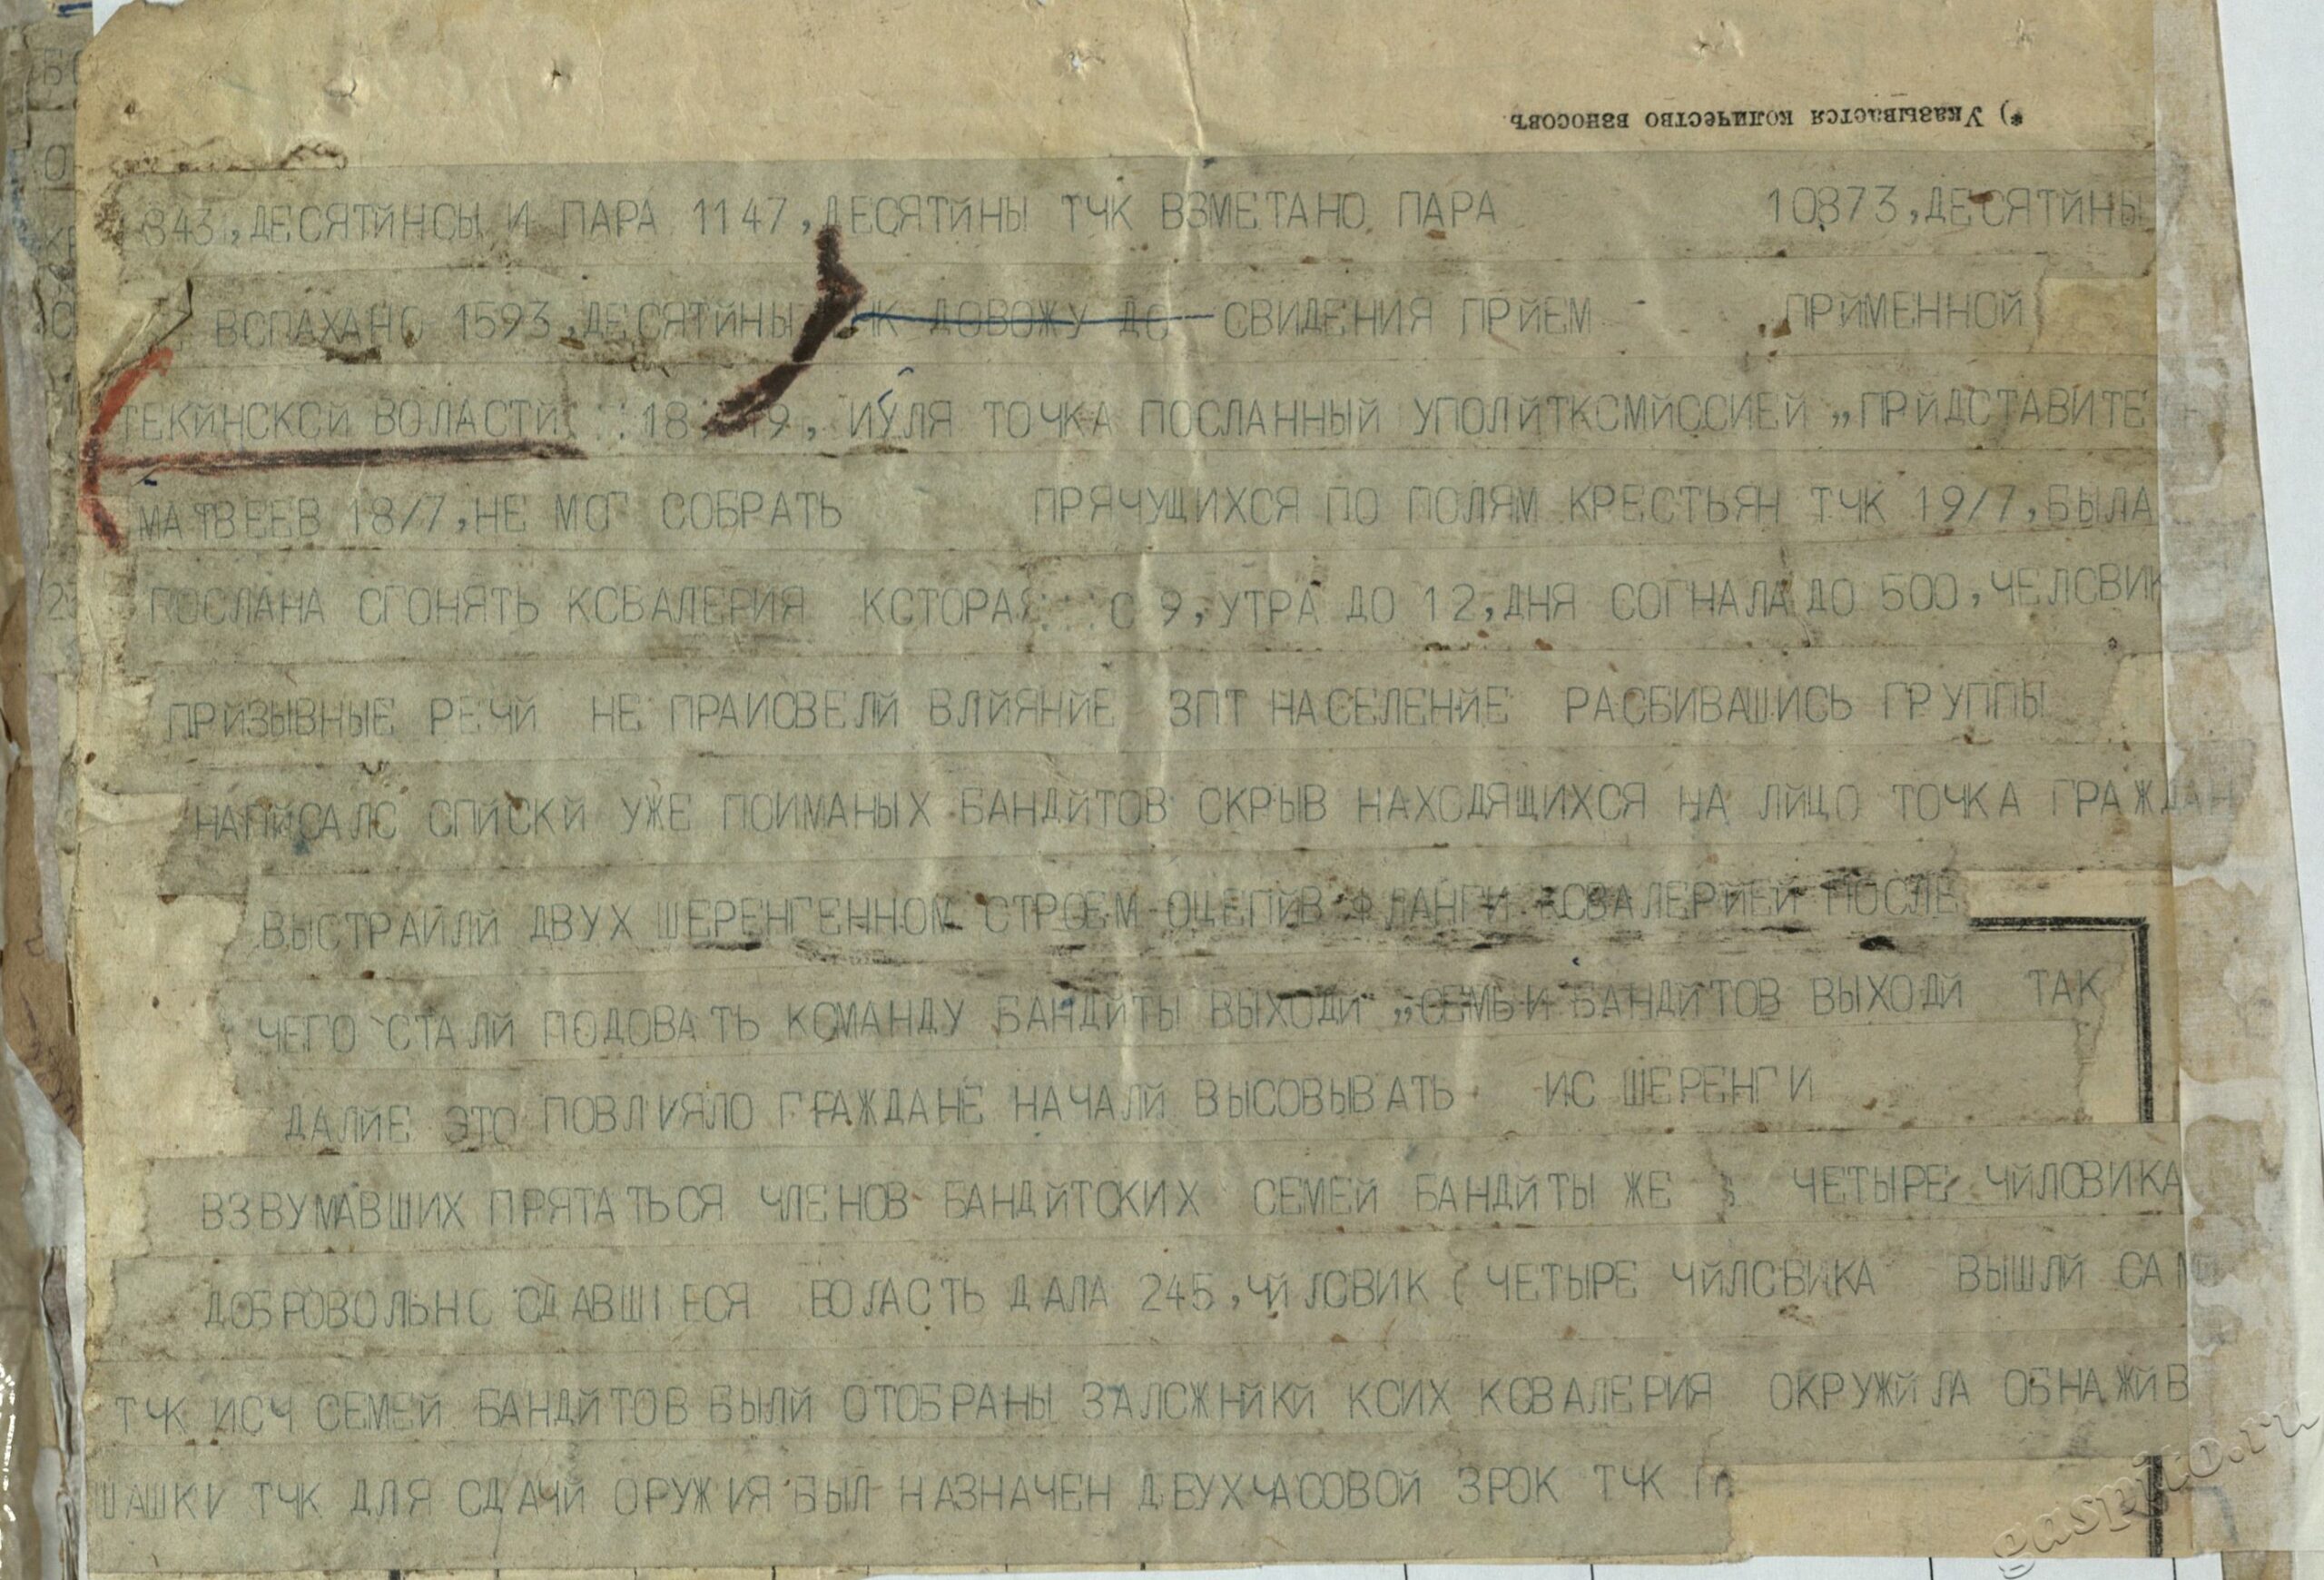 *) Указывается количество взносовъ.
843, ДЕСЯТЙНОЫ И ПАРА 1147, ДЕСЯТЙНЫ ТЧК ВЗМЕТАНО ПАРА 10873, ДЕСЯТЙНЫ
ВСПАХАНО 1593, ДЕСЯТЙНЫ ТЧК ДОВОЖУ ДО СВИДЕНИЯ ПРЙЕМ ПРЙМЕННОЙ
ТЕКЙНСКОЙ ВОЛАСТЙ 18, 19, ИУЛЯ ТОЧКА ПОСЛАННЫЙ УПОЛЙТКОМЙССИЕЙ „ПРЙДСТАВИТЕ
МАТВЕЕВ 18/7, НЕ МОГ СОБРАТЬ ПРЯЧУЩИХСЯ ПО ПОЛЯМ КРЕСТЬЯН ТЧК 19/7, БЫЛА
ПОСЛАНА СГОНЯТЬ КОВАЛЕРИЯ КОТОРАЯ С 9, УТРА ДО 12, ДНЯ СОГНАЛА ДО 500, ЧЕЛОВИК
ПРЙЗЫВНЫЕ РЕЧЙ НЕ ПРАИОВЕЛЙ ВЛЙЯНЙЕ ЗПТ НАСЕЛЕНЙЕ РАСБИВАШИСЬ ГРУППЫ
НАПЙСАЛО СПЙСКЙ УЖЕ ПОИМАНЫХ БАНДЙТОВ СКРЫВ НАХОДЯЩИХСЯ НА ЛЙЦО ТОЧКА ГРАЖДАН
ВЫСТРАЙЛЙ ДВУХ ШЕРЕНГЕННОМ СТРОЕМ ОЦЕПЙВ ФЛАНГИ КОВАЛЕРЙЕЙ ПОСЛЕ
ЧЕГО СТАЛЙ ПОДОВАТЬ КОМАНДУ БАНДЙТЫ ВЫХОДЙ „СЕМЬИ БАНДЙТОВ ВЫХОДЙ ТАК
ДАЛЙЕ ЭТО ПОВЛИЯЛО ГРАЖДАНЕ НАЧАЛЙ ВЫСОВЫВАТЬ ИС ШЕРЕНГИ
ВЗВУМАВШИХ ПРЯТАТЬСЯ ЧЛЕНОВ БАНДЙТСКИХ СЕМЕЙ БАНДЙТЫ ЖЕ ЧЕТЫРЕ ЧЙЛОВИКА
ДОБРОВОЛЬНО СДАВШIЕСЯ ВОЛАСТЬ ДАЛА 245, ЧЙЛОВИК ( ЧЕТЫРЕ ЧЙЛОВИКА ВЫШЛЙ САМ
ТЧК ИСЧ СЕМЕЙ БАНДЙТОВ БЫЛЙ ОТОБРАНЫ ЗАЛОЖНЙКЙ КОИХ КОВАЛЕРИЯ ОКРУЖЙЛА ОБНАЖЙВ
ШАШКИ ТЧК ДЛЯ СДАЧЙ ОРУЖИЯ БЫЛ НАЗНАЧЕН ДВУХЧАСОВОЙ ЗРОК ТЧК
gaspito.ru